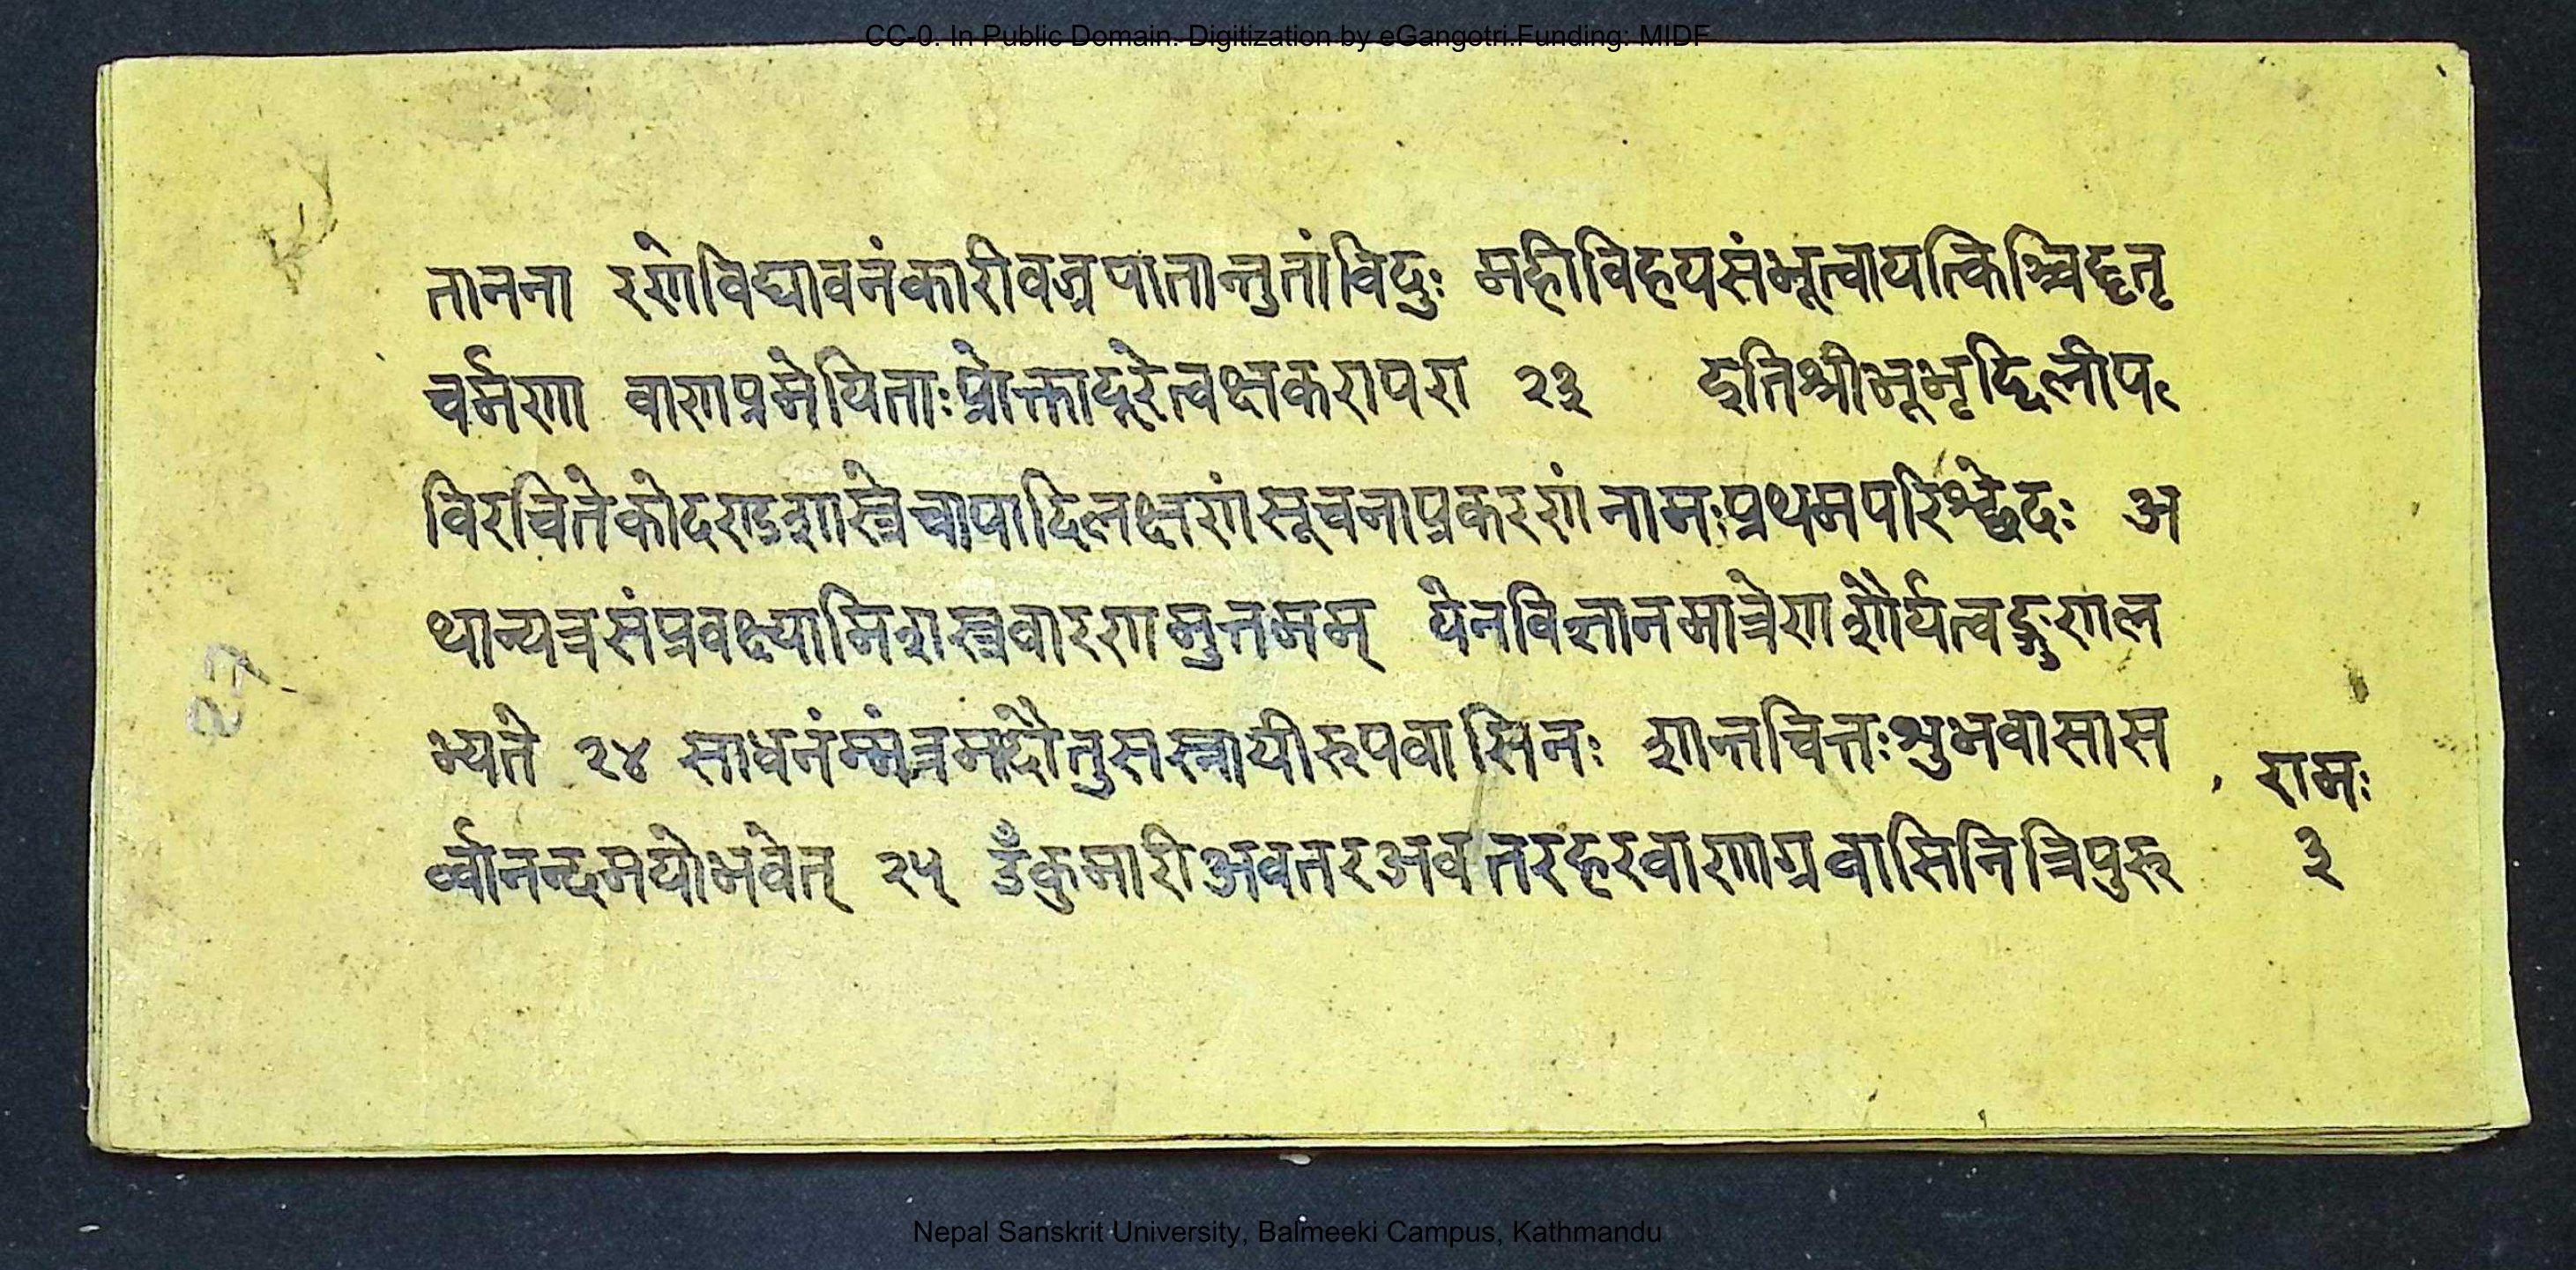 CC-0. In Public Domain. Digitization by eGangotri.Funding: MIDF
तानना रणेविघावनंकारीवज्रपातान्तुतांविदुः महीविहयसंभूत्वायत्किश्चिद्दृतृ
चर्मणा वाणप्रमेयिताःप्रोक्तादूरेत्वक्षकरापरा २३ इतिश्रीभूभृद्दिलीप
विरचितेकोदण्डशास्त्रेचापादिलक्षणंसूचनाप्रकरणंनामःप्रथमपरिश्छेदः अ
थान्यत्रसंप्रवक्ष्यामिशस्त्रवारणमुत्तमम् येनविज्ञानमात्रेणशौर्यत्वङ्गुणल
भ्यते २४ साधनंम्मंत्रमदौतुसस्नायीरुपवासिनः शान्तचित्तःशुभवासास
र्व्वानन्दमयोभवेत् २५ उँकुमारीअवतरअवतरहरवाणाग्रवासिनित्रिपुरु
रामः
३
27
Nepal Sanskrit University, Balmeeki Campus, Kathmandu